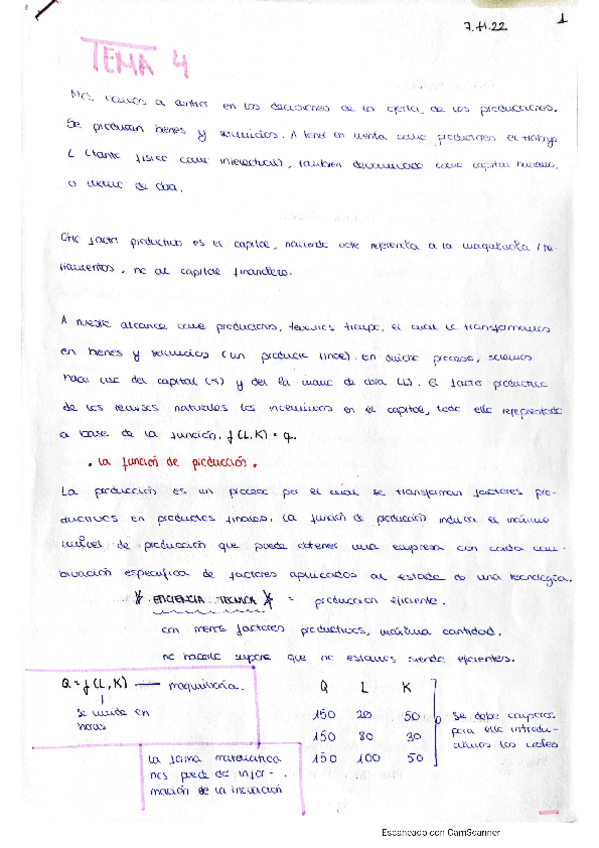 7.11.22
1
TEMA 4
Nos vamos a centrar en las decisiones de la oferta, de los productores.
Se producen bienes y servicios. A tener en cuenta como productores el trabajo
L (tanto físico como intelectual), también denominado como capital humano,
o mano de obra.
Otro factor productivo es el capital, haciendo este referencia a la maquinaria
no al capital financiero.
A nuestro alcance como productores, tenemos tiempo, el cual lo transformamos
en bienes y servicios (un producto final). En dicho proceso, solemos
hacer uso del capital (K) y de la mano de obra (L). El factor productivo
de los recursos naturales los incluimos en el capital, todo ello representado
a base de la función. f(L,K) = q.
• La función de producción •
La producción es un proceso por el cual se transforman factores pro-
ductivos en productos finales. La función de producción indica el máximo
nivel de producción que puede obtener una empresa con cada com-
binación específica de factores aplicados al estado de una tecnología.
* EFICIENCIA TECNICA * = produccion eficiente.
con menos factores productivos, máxima cantidad.
no hacerlo supone que no estamos siendo eficientes.
Q = f(L,K) — maquinaria.
se mide en
horas
La forma matematica
nos puede dar infor-
mación de la
Q L K
150 20 50
150 80 30
150 100 50
Se debe comparar
para ello introdu-
cimos los costes
Escaneado con CamScanner